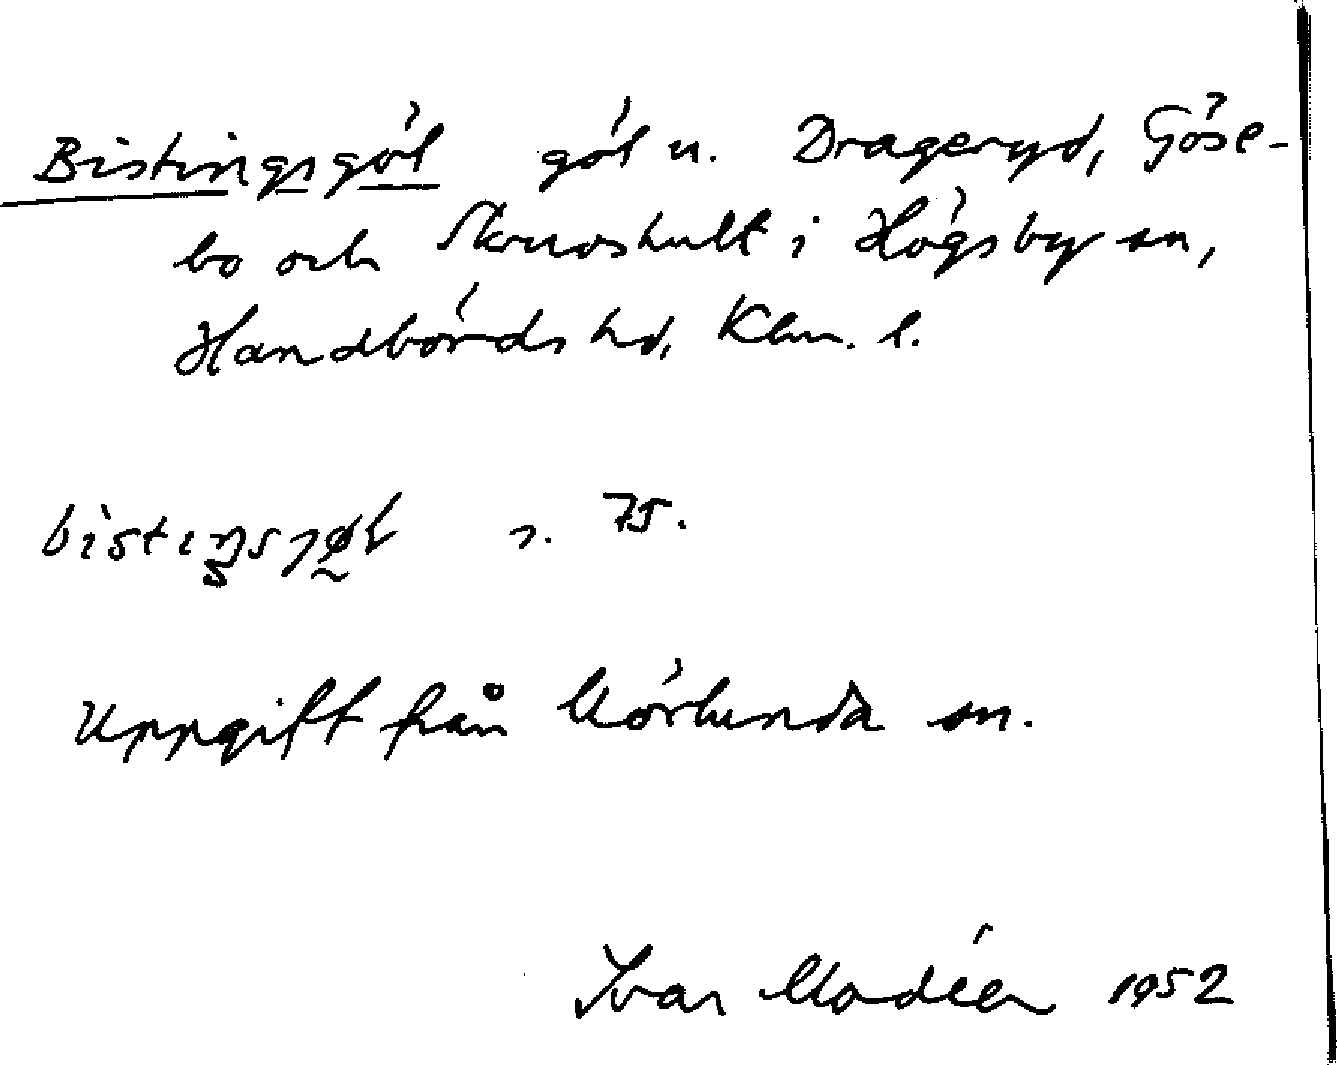 Bistingsgöl göl u. Drageryd, Göse-
bo och Skruvshult i Högsby sn,
Handbörds hd, Klm. l.
s. 75.
Uppgift från Mörlunda sn.
Ivar Modéer 1952